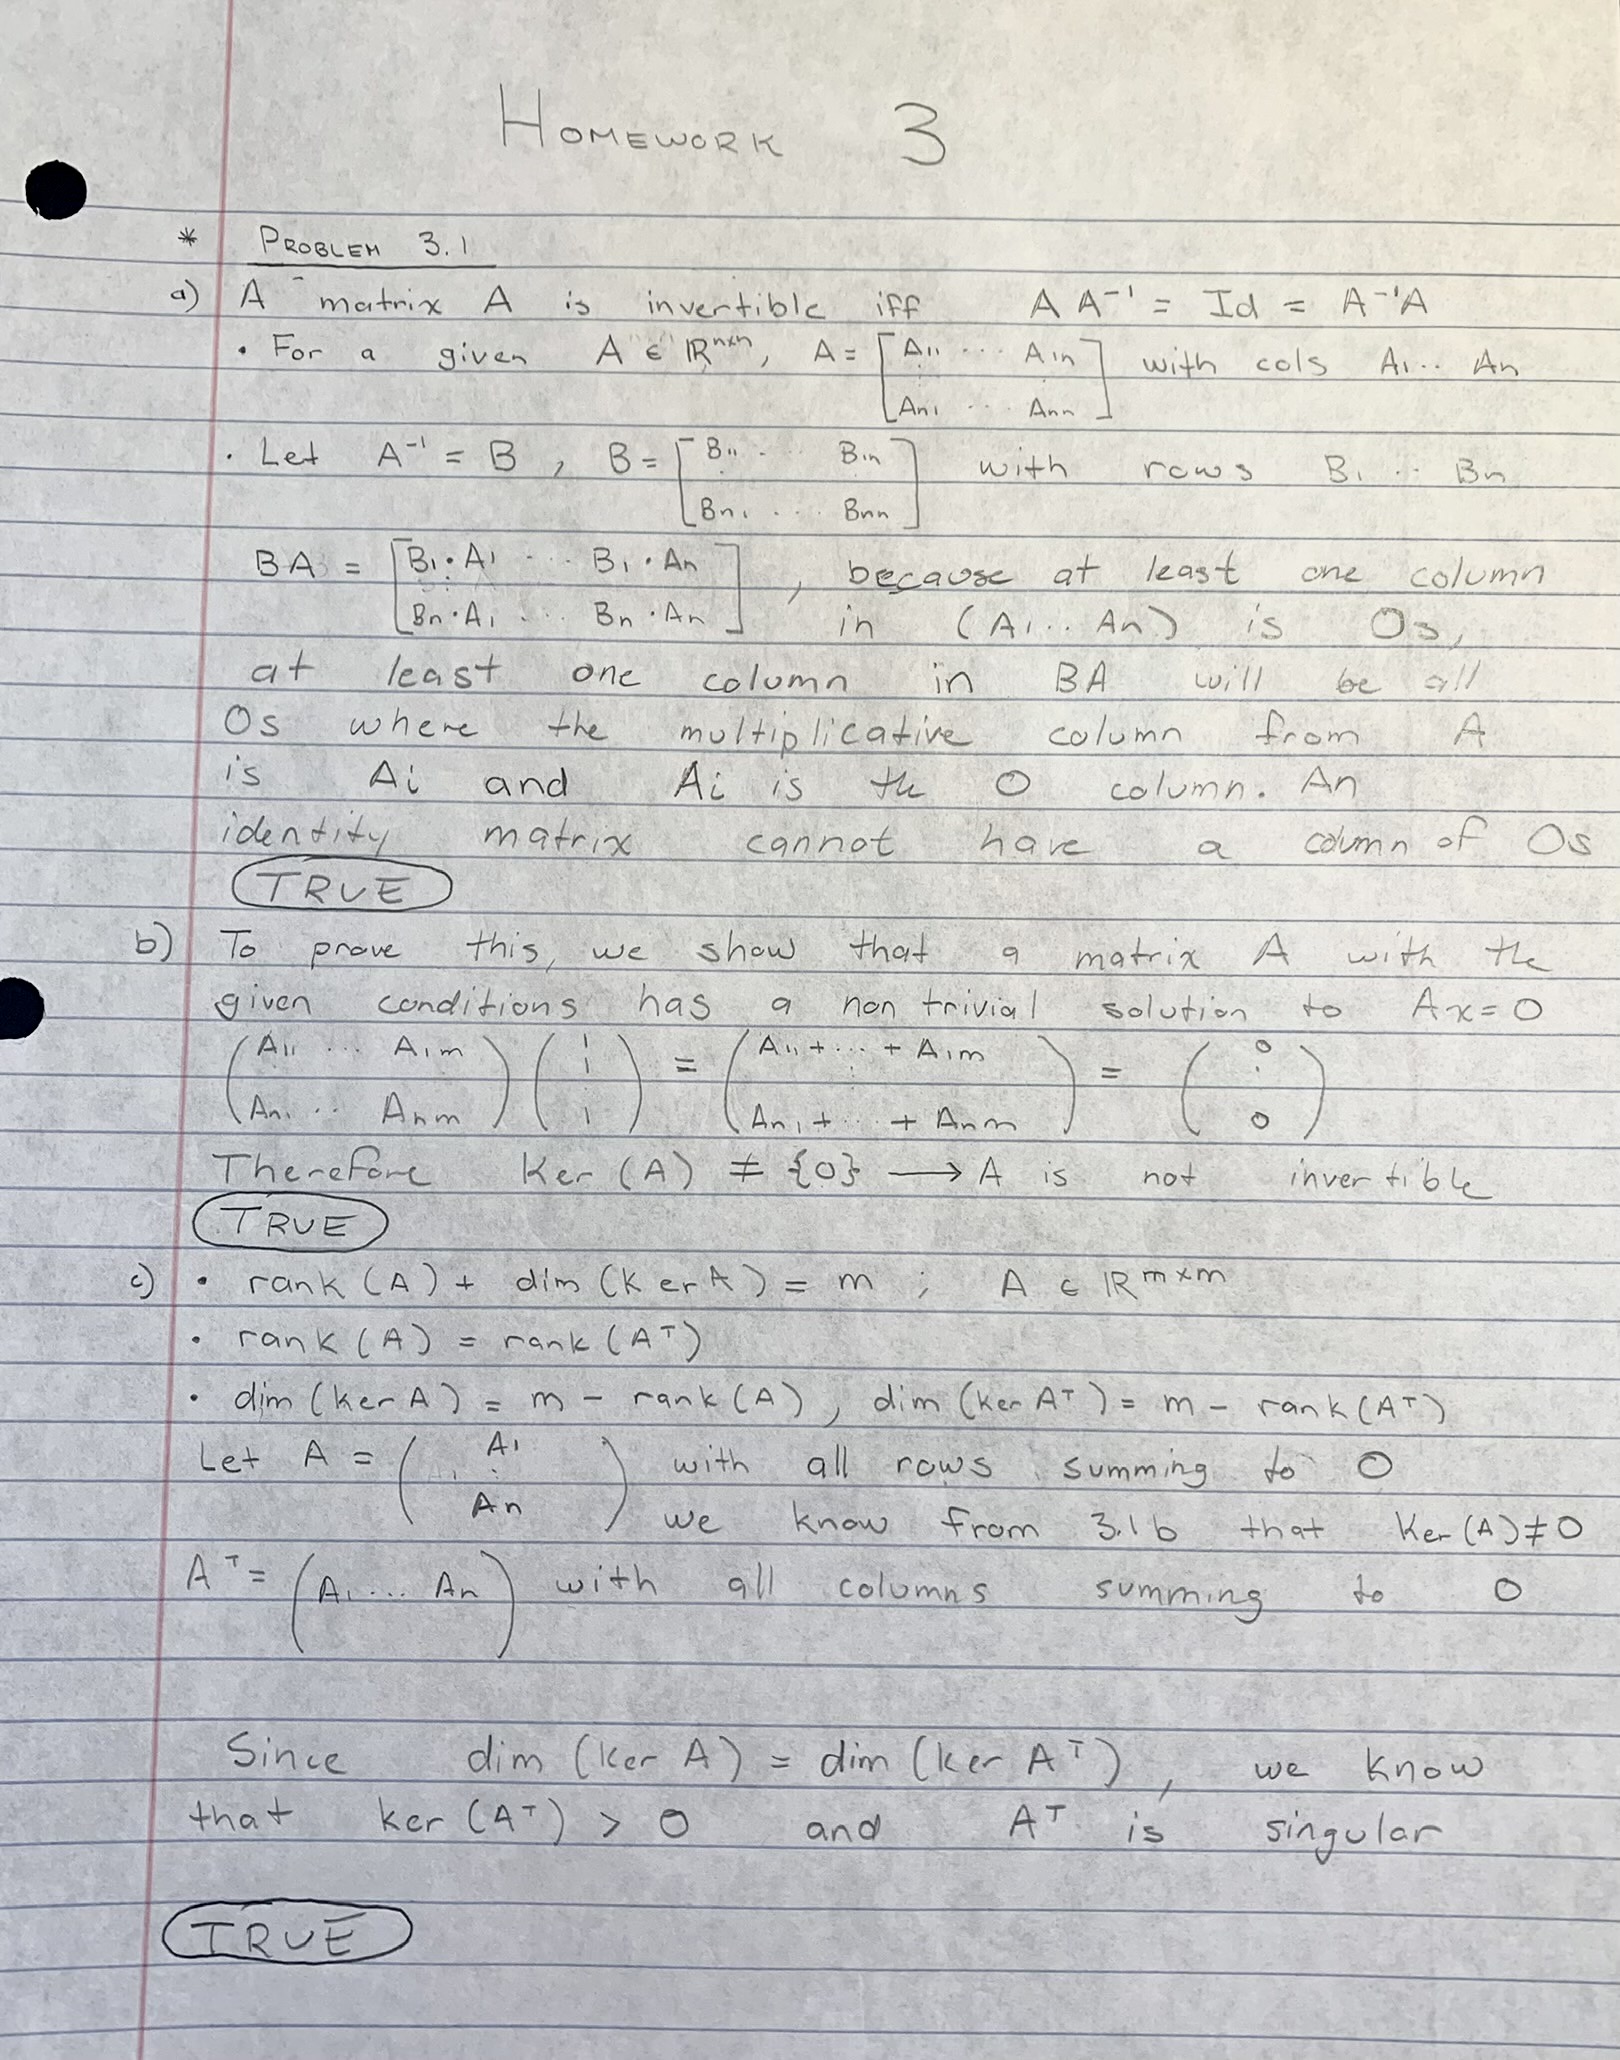 HOMEWORK 3
* PROBLEM 3.1
a) A matrix A is invertible iff A A⁻¹ = Id = A⁻¹A
• For a given A ∈ ℝⁿˣⁿ, A = [A₁₁ ··· A₁ₙ ; Aₙ₁ ··· Aₙₙ] with cols A₁·· Aₙ
• Let A⁻¹ = B , B = [B₁₁ ··· B₁ₙ ; Bₙ₁ ··· Bₙₙ] with rows B₁ ·· Bₙ
BA = [B₁·A₁ ··· B₁·Aₙ ; Bₙ·A₁ ··· Bₙ·Aₙ] , because at least one column
in (A₁·· Aₙ) is 0s,
at least one column in BA will be all
0s where the multiplicative column from A
is Aᵢ and Aᵢ is the 0 column. An
identity matrix cannot have a column of 0s
TRUE
b) To prove this, we show that a matrix A with the
given conditions has a non trivial solution to Ax=0
(A₁₁ ··· A₁ₘ ; Aₙ₁ ·· Aₙₘ) (1 ⋮ 1) = (A₁₁+ ··· + A₁ₘ ⋮ Aₙ₁+ ·· + Aₙₘ) = (0 ⋮ 0)
Therefore Ker (A) ≠ {0} ⟶ A is not invertible
TRUE
c) • rank (A) + dim (Ker A) = m ; A ∈ ℝᵐˣᵐ
• rank (A) = rank (Aᵀ)
• dim (ker A) = m - rank (A) , dim (Ker Aᵀ) = m - rank (Aᵀ)
Let A = (A₁ ⋮ Aₙ) with all rows summing to 0
we know from 3.1b that Ker (A) ≠ 0
Aᵀ = (A₁ ··· Aₙ) with all columns summing to 0
Since dim (Ker A) = dim (Ker Aᵀ) , we know
that ker (Aᵀ) > 0 and Aᵀ is singular
TRUE